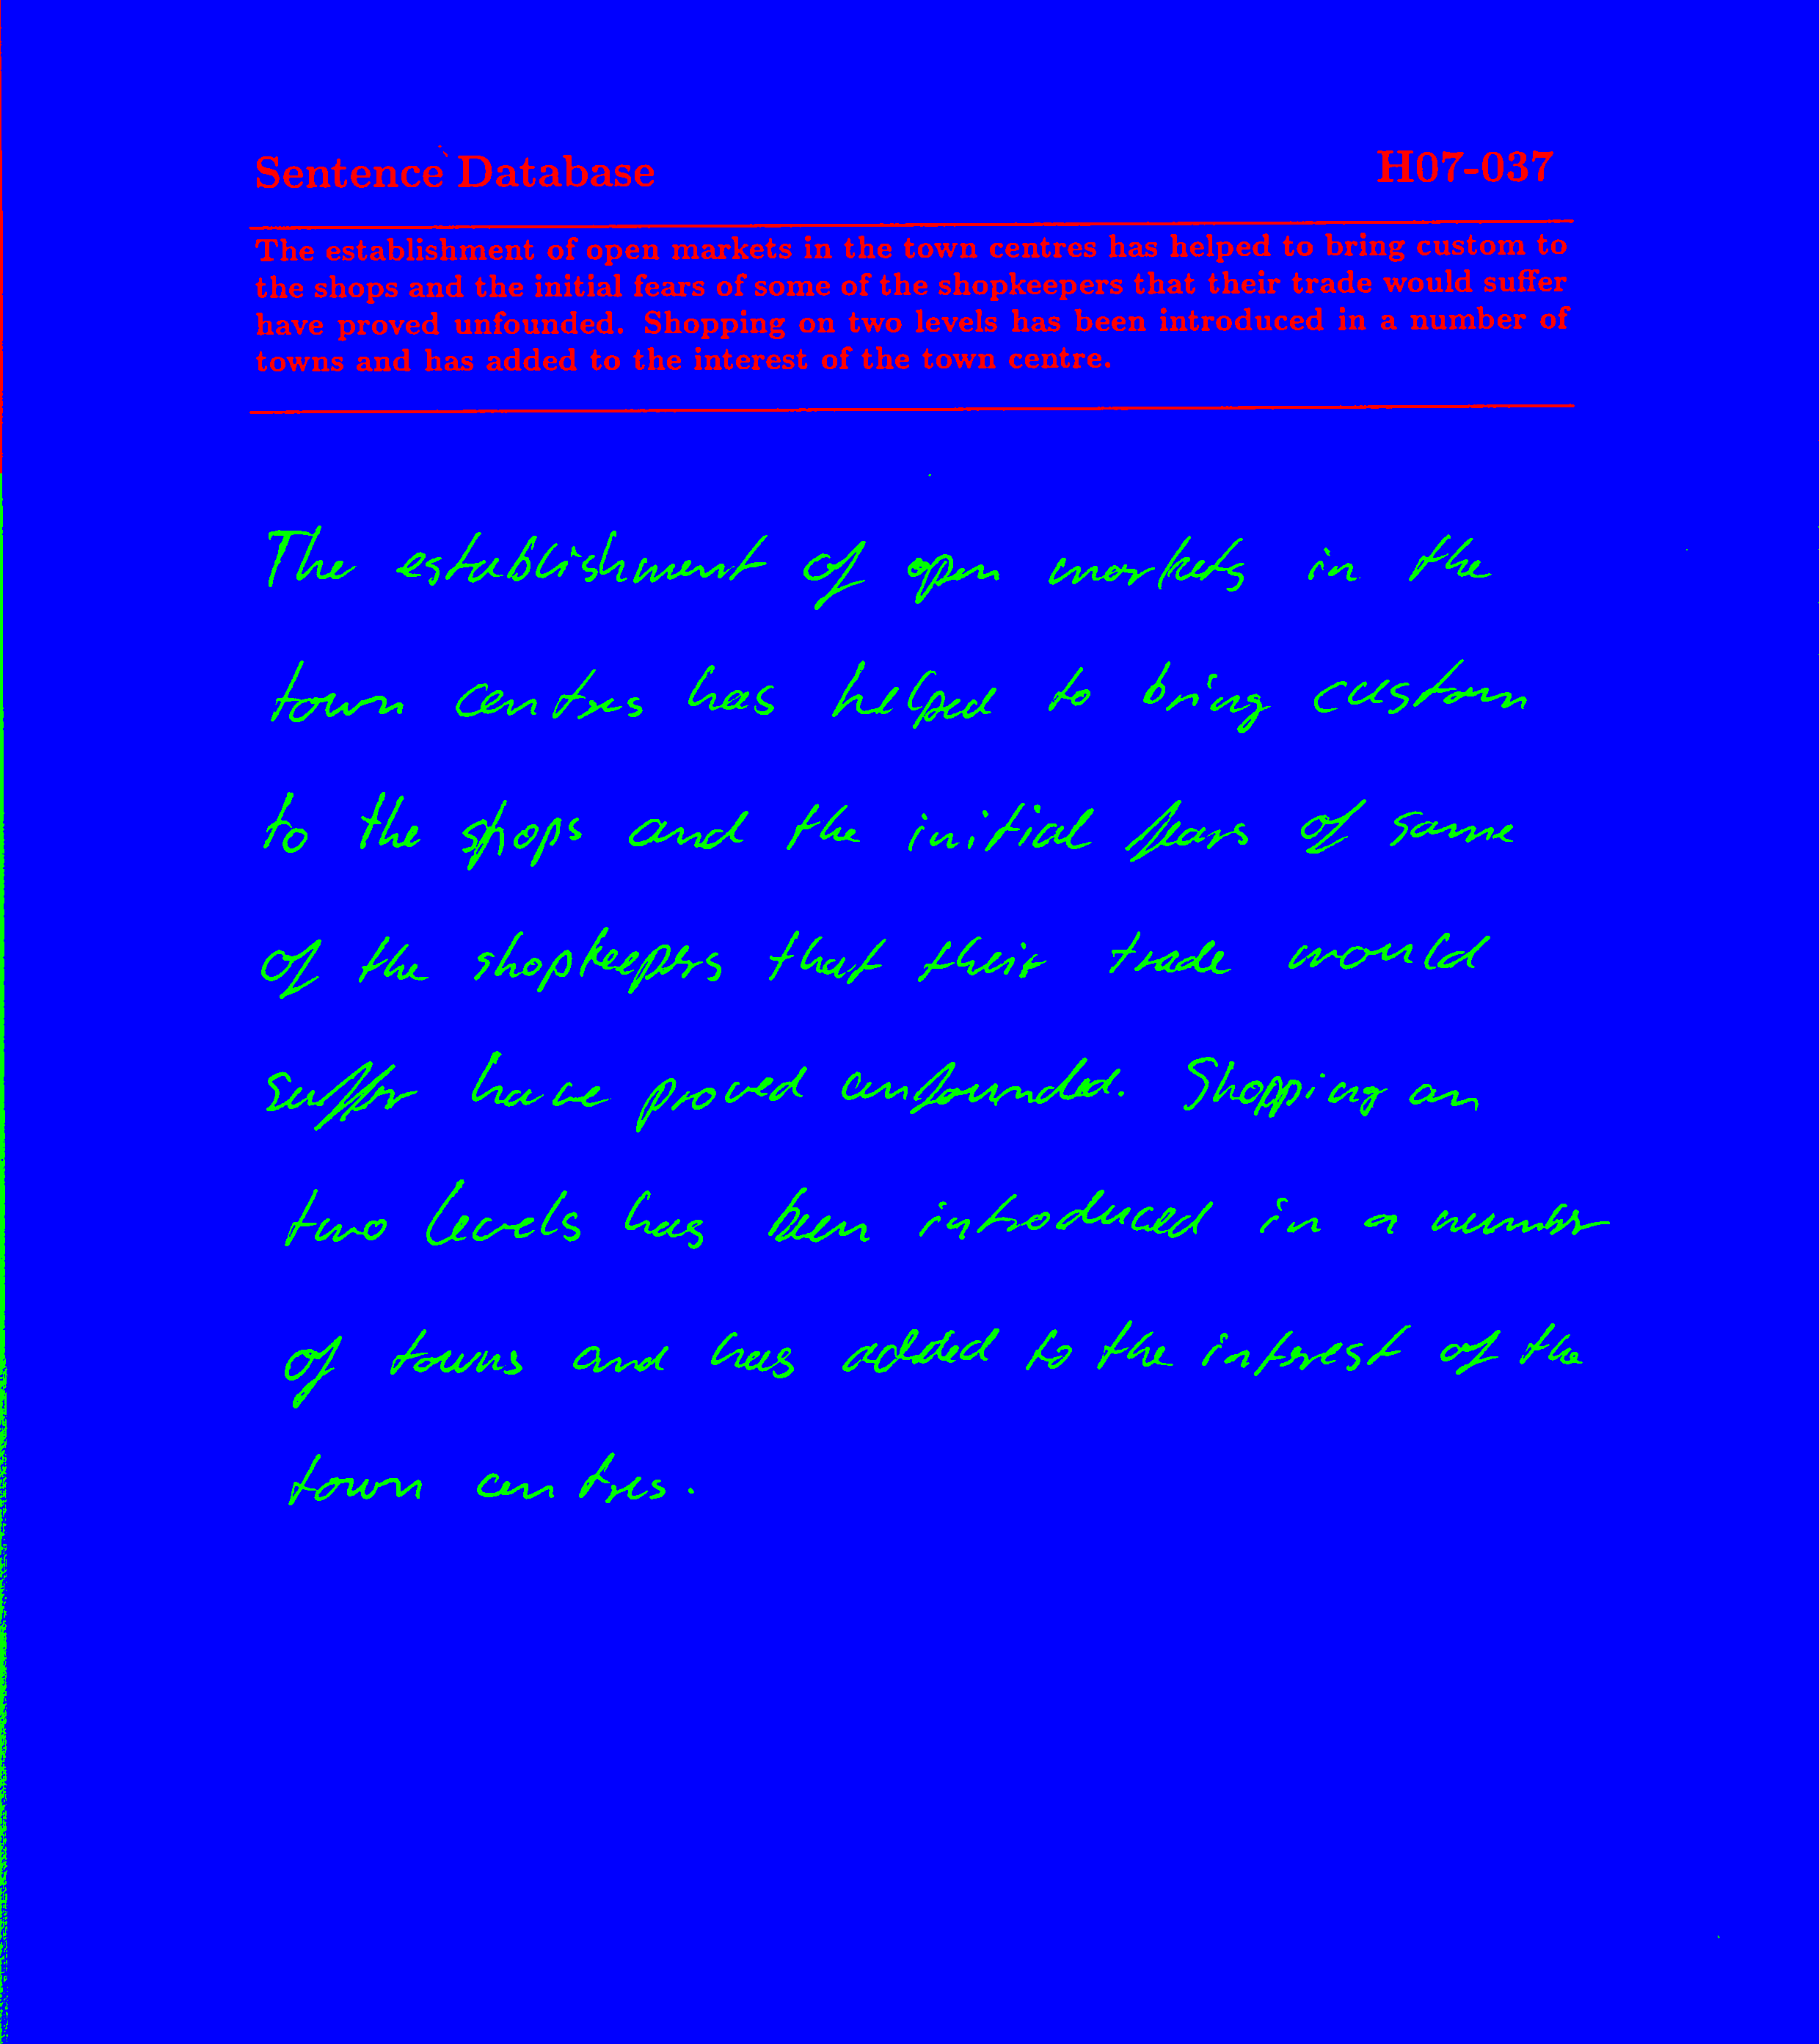 Sentence Database H07-037
The establishment of open markets in the town centres has helped to bring custom to
the shops and the initial fears of some of the shopkeepers that their trade would suffer
have proved unfounded. Shopping on two levels has been introduced in a number of
towns and has added to the interest of the town centre.
The establishment of open markets in the
town centres has helped to bring custom
to the shops and the initial fears of some
of the shopkeepers that their trade would
suffer have proved unfounded. Shopping on
two levels has been introduced in a number
of towns and has added to the interest of the
town centres.